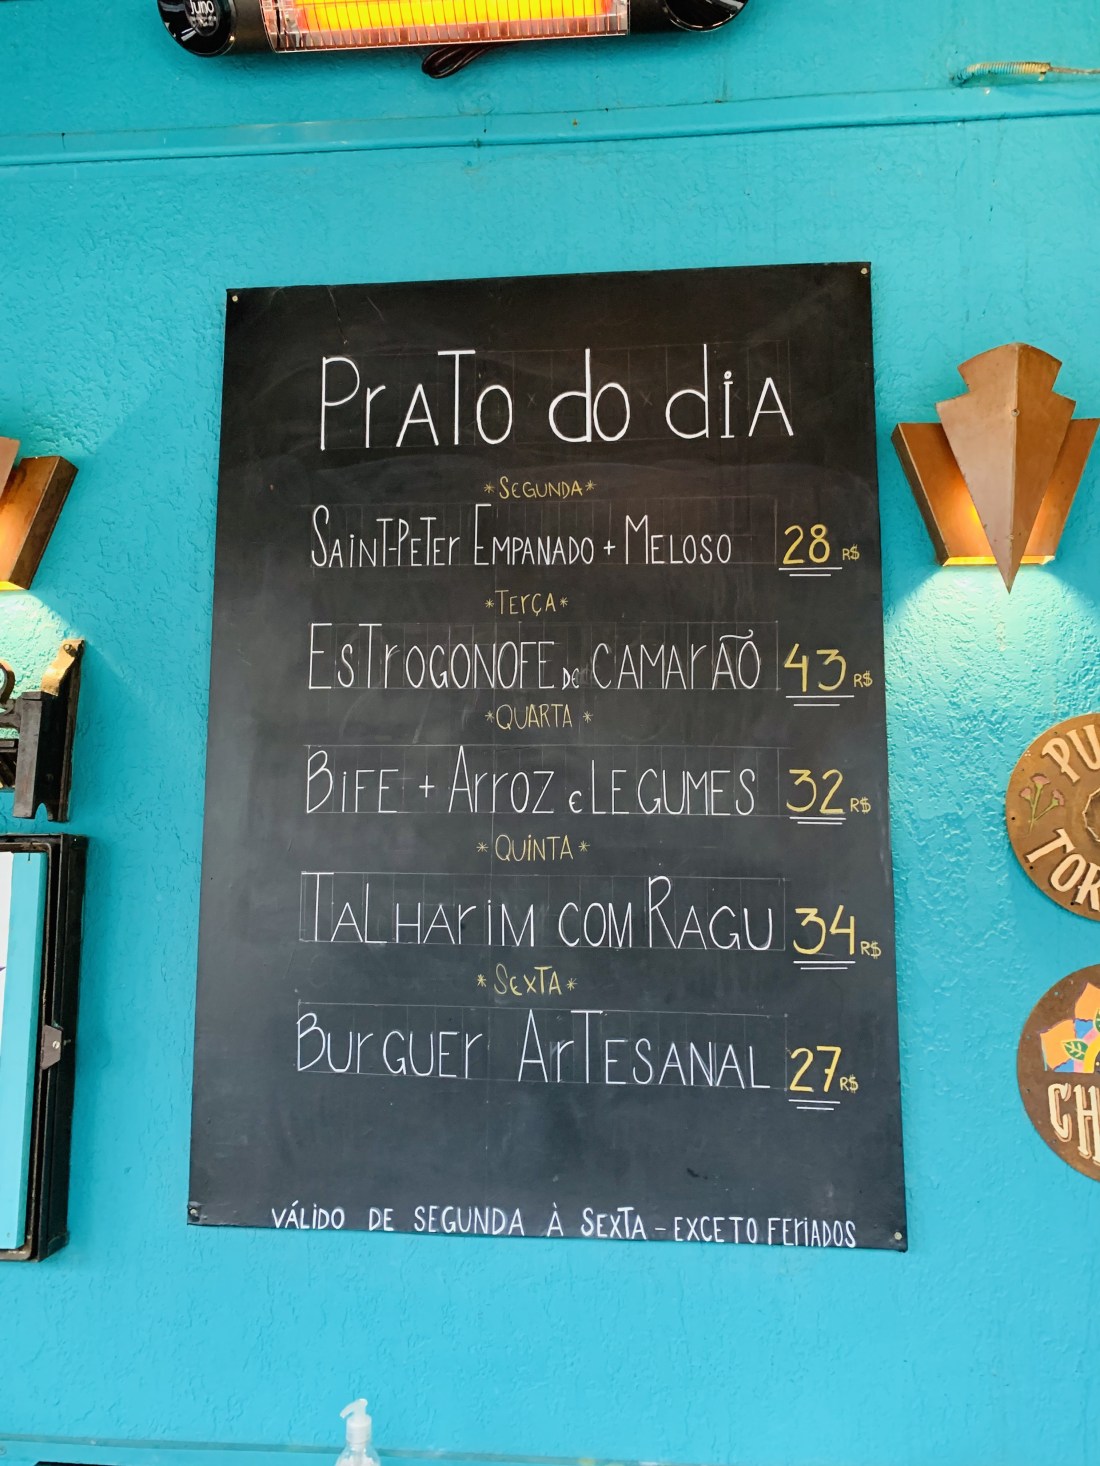 Juno
PrATo do diA
*SEGUNDA*
SAiNT-PETEr EMPANADO + MELOSO 28 R$
*TErÇA*
ESTrOGONOFE DE CAMArÃO 43 R$
*QUARTA *
BiFE + ArrOZ e LEGUMES 32 R$
*QUiNTA*
TALHAriM COM RAGU 34 R$
*SEXTA*
BUrGUEr ArTESANAL 27 R$
VÁLiDO DE SEGUNDA À SEXTA - EXCETO FEriADOS